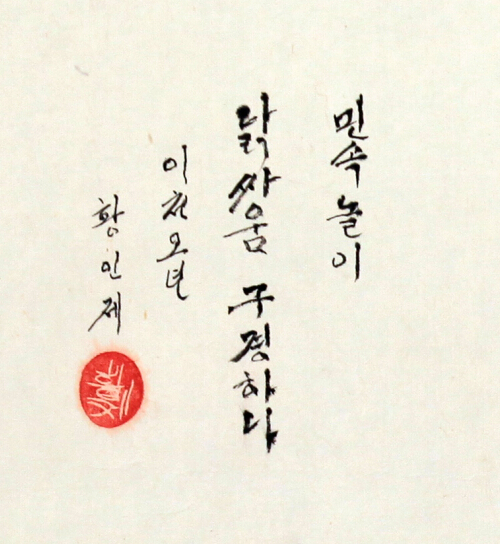 민속놀이
닭싸움 구경하다
이천오년
황인제